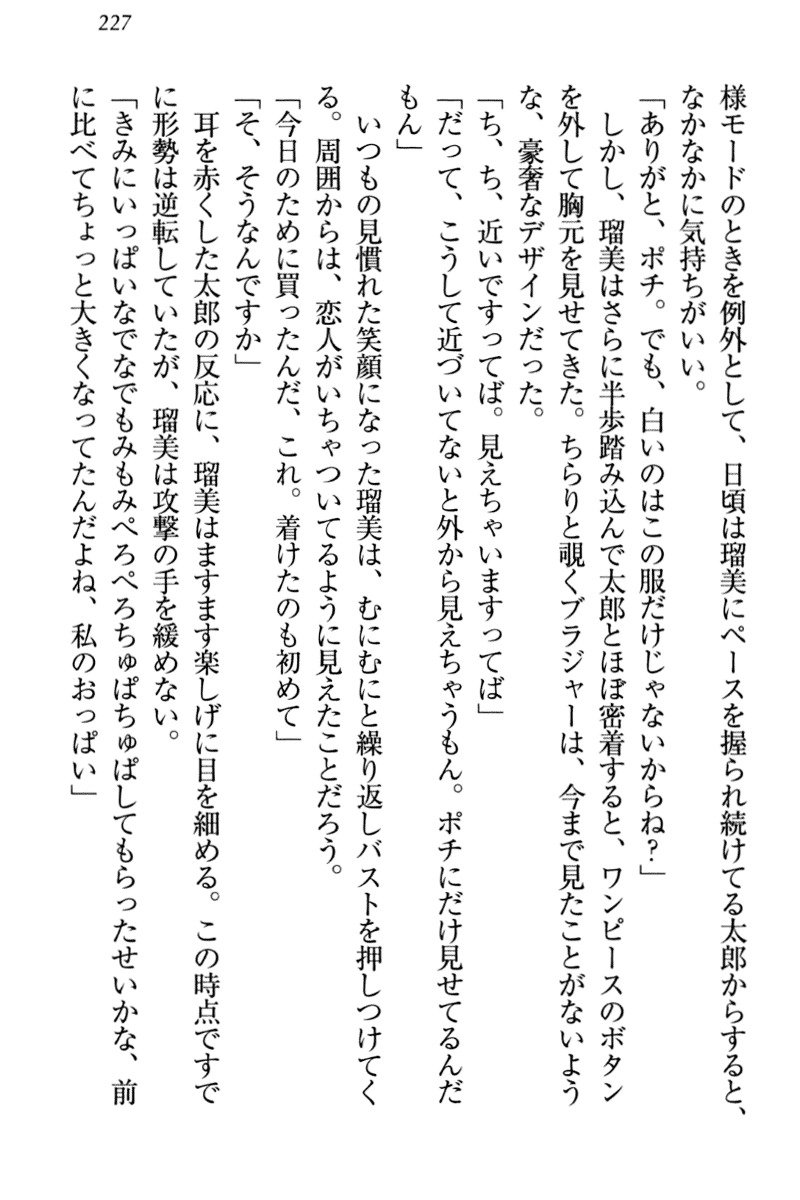 227
様モードのときを例外として、日頃は瑠美にペースを握られ続けてる太郎からすると、
なかなかに気持ちがいい。
「ありがと、ポチ。でも、白いのはこの服だけじゃないからね？」
しかし、瑠美はさらに半歩踏み込んで太郎とほぼ密着すると、ワンピースのボタン
を外して胸元を見せてきた。ちらりと覗くブラジャーは、今まで見たことがないよう
な、豪奢なデザインだった。
「ち、ち、近いですってば。見えちゃいますってば」
「だって、こうして近づいてないと外から見えちゃうもん。ポチにだけ見せてるんだ
もん」
いつもの見慣れた笑顔になった瑠美は、むにむにと繰り返しバストを押しつけてく
る。周囲からは、恋人がいちゃついてるように見えたことだろう。
「今日のために買ったんだ、これ。着けたのも初めて」
「そ、そうなんですか」
耳を赤くした太郎の反応に、瑠美はますます楽しげに目を細める。この時点ですで
に形勢は逆転していたが、瑠美は攻撃の手を緩めない。
「きみにいっぱいなでなでもみもみぺろぺろちゅぱちゅぱしてもらったせいかな、前
に比べてちょっと大きくなってたんだよね、私のおっぱい」